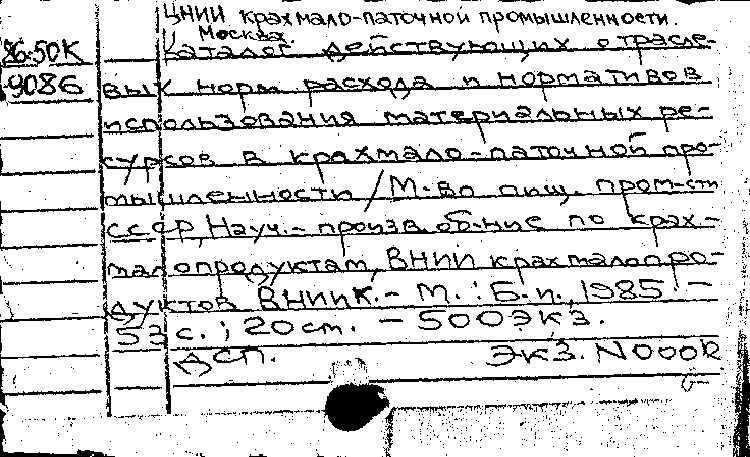 ЦНИИ крахмало-паточной промышленности.
Москва.
86-50К Каталог действующих отрасле-
9086 вых норм расхода и нормативов
использования материальных ре-
сурсов в крахмало-паточной про-
мышленности / М-во пищ. пром-сти
СССР, Науч.-произв. об-ние по крах-
малопродуктам, ВНИИ крахмалопро-
дуктов ВНИИК. - М. : Б.и., 1985. -
53 с. ; 20 см. - 500 экз.
ДСП. Экз. N